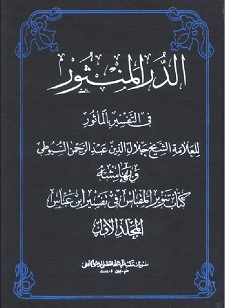 الدر المنثور
في التفسير بالمأثور
للعلامة الشيخ جلال الدين عبد الرحمن السيوطي
وبهامشه
كتاب تنوير المقباس في تفسير ابن عباس
المجلد الأول